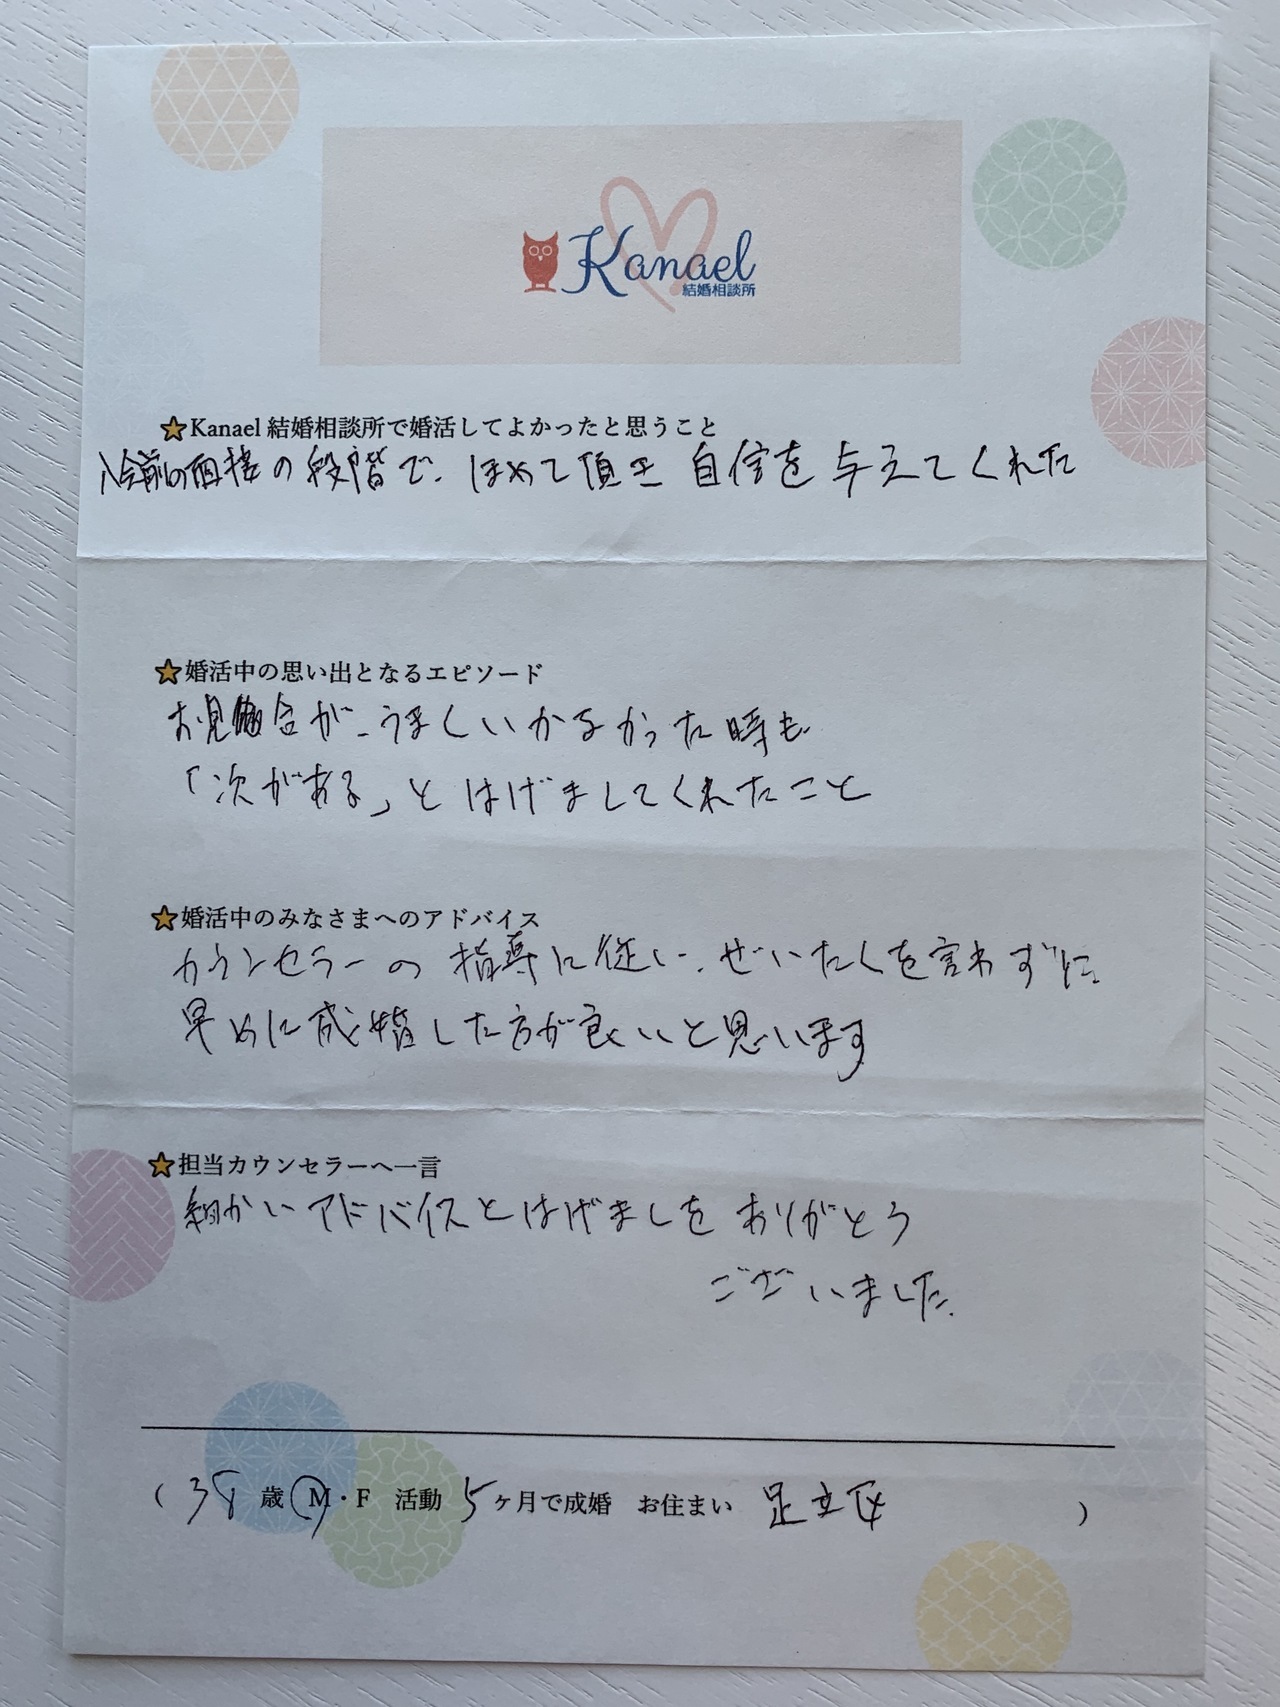 Kanael
結婚相談所
Kanael 結婚相談所で婚活してよかったと思うこと
入会前の面接の段階で、ほめて頂き 自信を与えてくれた
婚活中の思い出となるエピソード
お見合が、うまくいかなかった時も
「次がある」とはげましてくれたこと
婚活中のみなさまへのアドバイス
カウンセラーの指導に従い、ぜいたくを言わずに
早めに成婚した方が良いと思います
担当カウンセラーへ一言
細かいアドバイスとはげましをありがとう
ございました。
(38歳 M・F 活動 5ヶ月で成婚 お住まい 足立区)